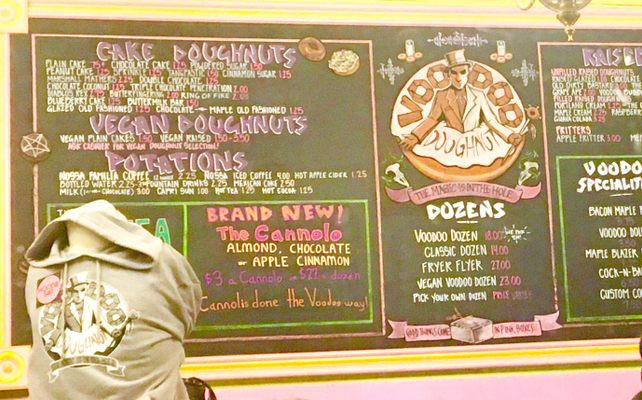 CAKE DOUGHNUTS
PLAIN CAKE .75¢ CHOCOLATE CAKE 1.25 POWDERED SUGAR 1.50
PEANUT CAKE 2.25 SPRINKLE 1.75 TANGTASTIC 1.50 CINNAMON SUGAR 1.25
MARSHALL MATHERS 2.25 DOUBLE CHOCOLATE 1.75
CHOCOLATE COCONUT TRIPLE CHOCOLATE PENETRATION 2.00
DIABLOS REX BUTTERFINGERING 2.00 RING OF FIRE 2.00
BLUEBERRY CAKE BUTTERMILK BAR 1.50
GLAZED OLD FASHIONED CHOCOLATE MAPLE OLD FASHIONED
VEGAN DOUGHNUTS
VEGAN PLAIN CAKES 1.50 VEGAN RAISED 1.50-3.50
ASK CASHIER FOR VEGAN DOUGHNUT SELECTION!
POTATIONS
NOSSA FAMILIA COFFEE 2.25 NOSSA ICED COFFEE 4.00 HOT APPLE CIDER 1.25
BOTTLED WATER 2.25 FOUNTAIN DRINKS 2.25 MEXICAN COKE 2.50
MILK (CHOCOLATE) 3.00 CAPRI SUN 1.00 HOT TEA 1.25 HOT COCOA 1.25
BRAND NEW!
The Cannolo
ALMOND, CHOCOLATE
or APPLE CINNAMON
$3 a Cannolo or $22 a dozen
Cannolis done the Voodoo way!
VOODOO
DOUGHNUT
THE MAGIC IS IN THE HOLE
DOZENS
VOODOO DOZEN 18.00
CLASSIC DOZEN 14.00
FRYER FLYER 27.00
VEGAN VOODOO DOZEN 23.00
PICK YOUR OWN DOZEN PRICE
GOOD THINGS COME IN PINK BOXES
RAISE
UNFILLED RAISED DOUGHNUTS
RAISED GLAZED
OLD DIRTY BASTARD
GRAPE APE 2.00 VOODOO BUBBL
FILLED RAISED DOUGHNUTS
PORTLAND CREAM
MAPLE CREAM 2.25 RASPBERR
FRITTERS
APPLE FRITTER
VOODO
SPECIALT
BACON MAPLE
VOODOO DOL
MAPLE BLAZER
COCK-N-BA
CUSTOM CO
VOODOO
DOUGHNUT